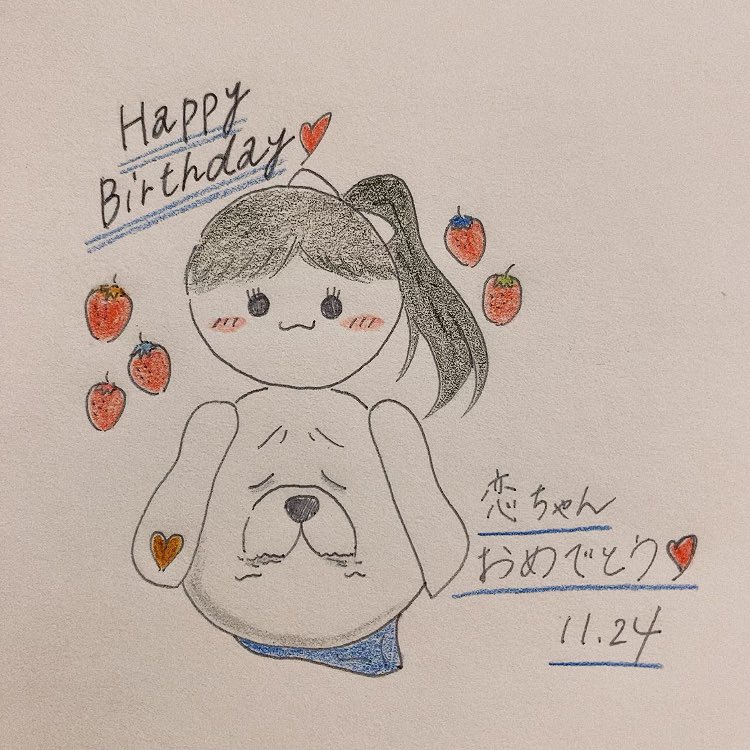 Happy
Birthday
恋ちゃん
おめでとう
11.24